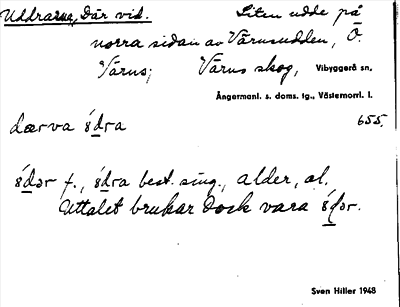 Uddrarna, Där vid. Liten udde på
norra sidan av Värnsudden, Ö.
Värns; Värns skog, Vibyggerå sn,
Ångermanl. s. doms. tg., Västernorrl. l.
655.
Lærva ådra
ådər f., ådra best. sing., alder, al.
Uttalet brukar dock vara åd́ər.
Sven Hiller 1948